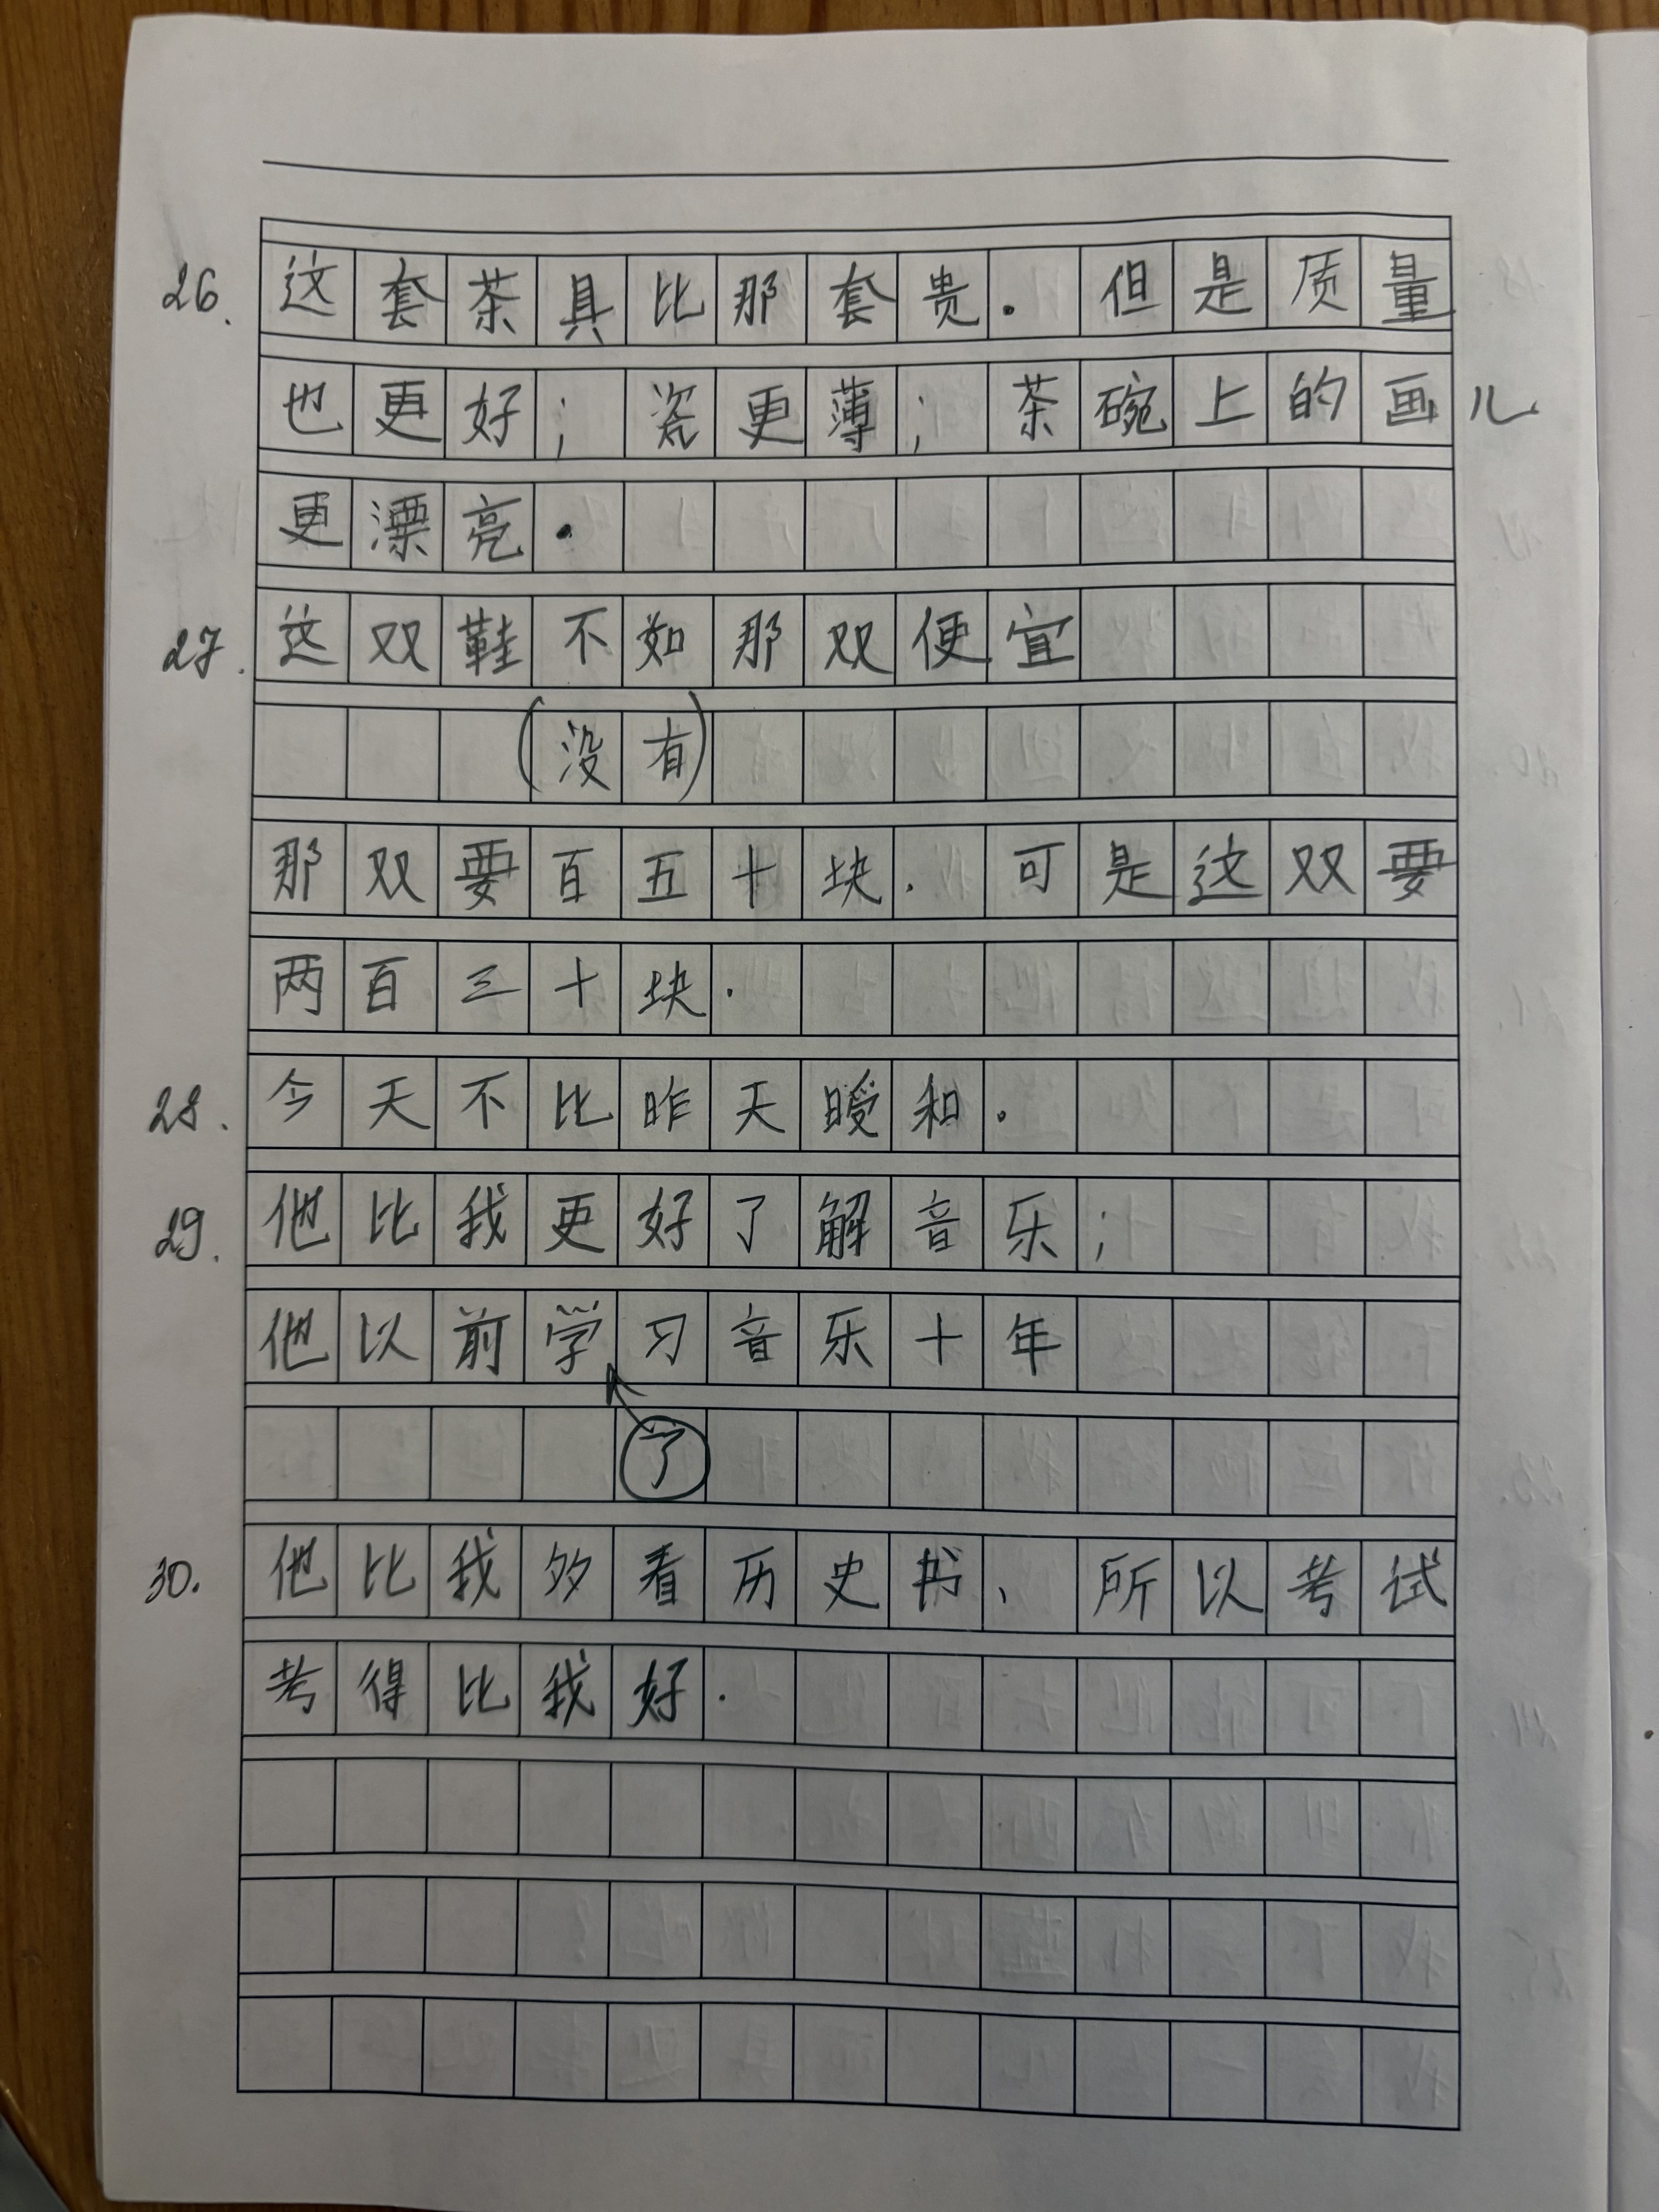 26. 这套茶具比那套贵. 但是质量
也更好; 瓷更薄; 茶碗上的画儿
更漂亮.
27. 这双鞋不如那双便宜
(没有)
那双要百五十块. 可是这双要
两百三十块.
28. 今天不比昨天暖和.
29. 他比我更好了解音乐;
他以前学习音乐十年
了
30. 他比我多看历史书、所以考试
考得比我好.